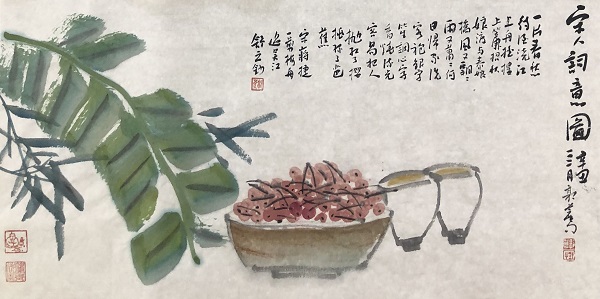 宋人詞意圖
一片春愁
待酒浇江
上舟摇樓
上簾招秋
娘渡与泰娘
橋風又飄〻
雨又蕭〻何
日歸家洗
客袍銀字
笙調心字
香燒流光
容易把人
抛紅了櫻
桃绿了芭
蕉
宋蒋捷
一剪梅舟
過吴江